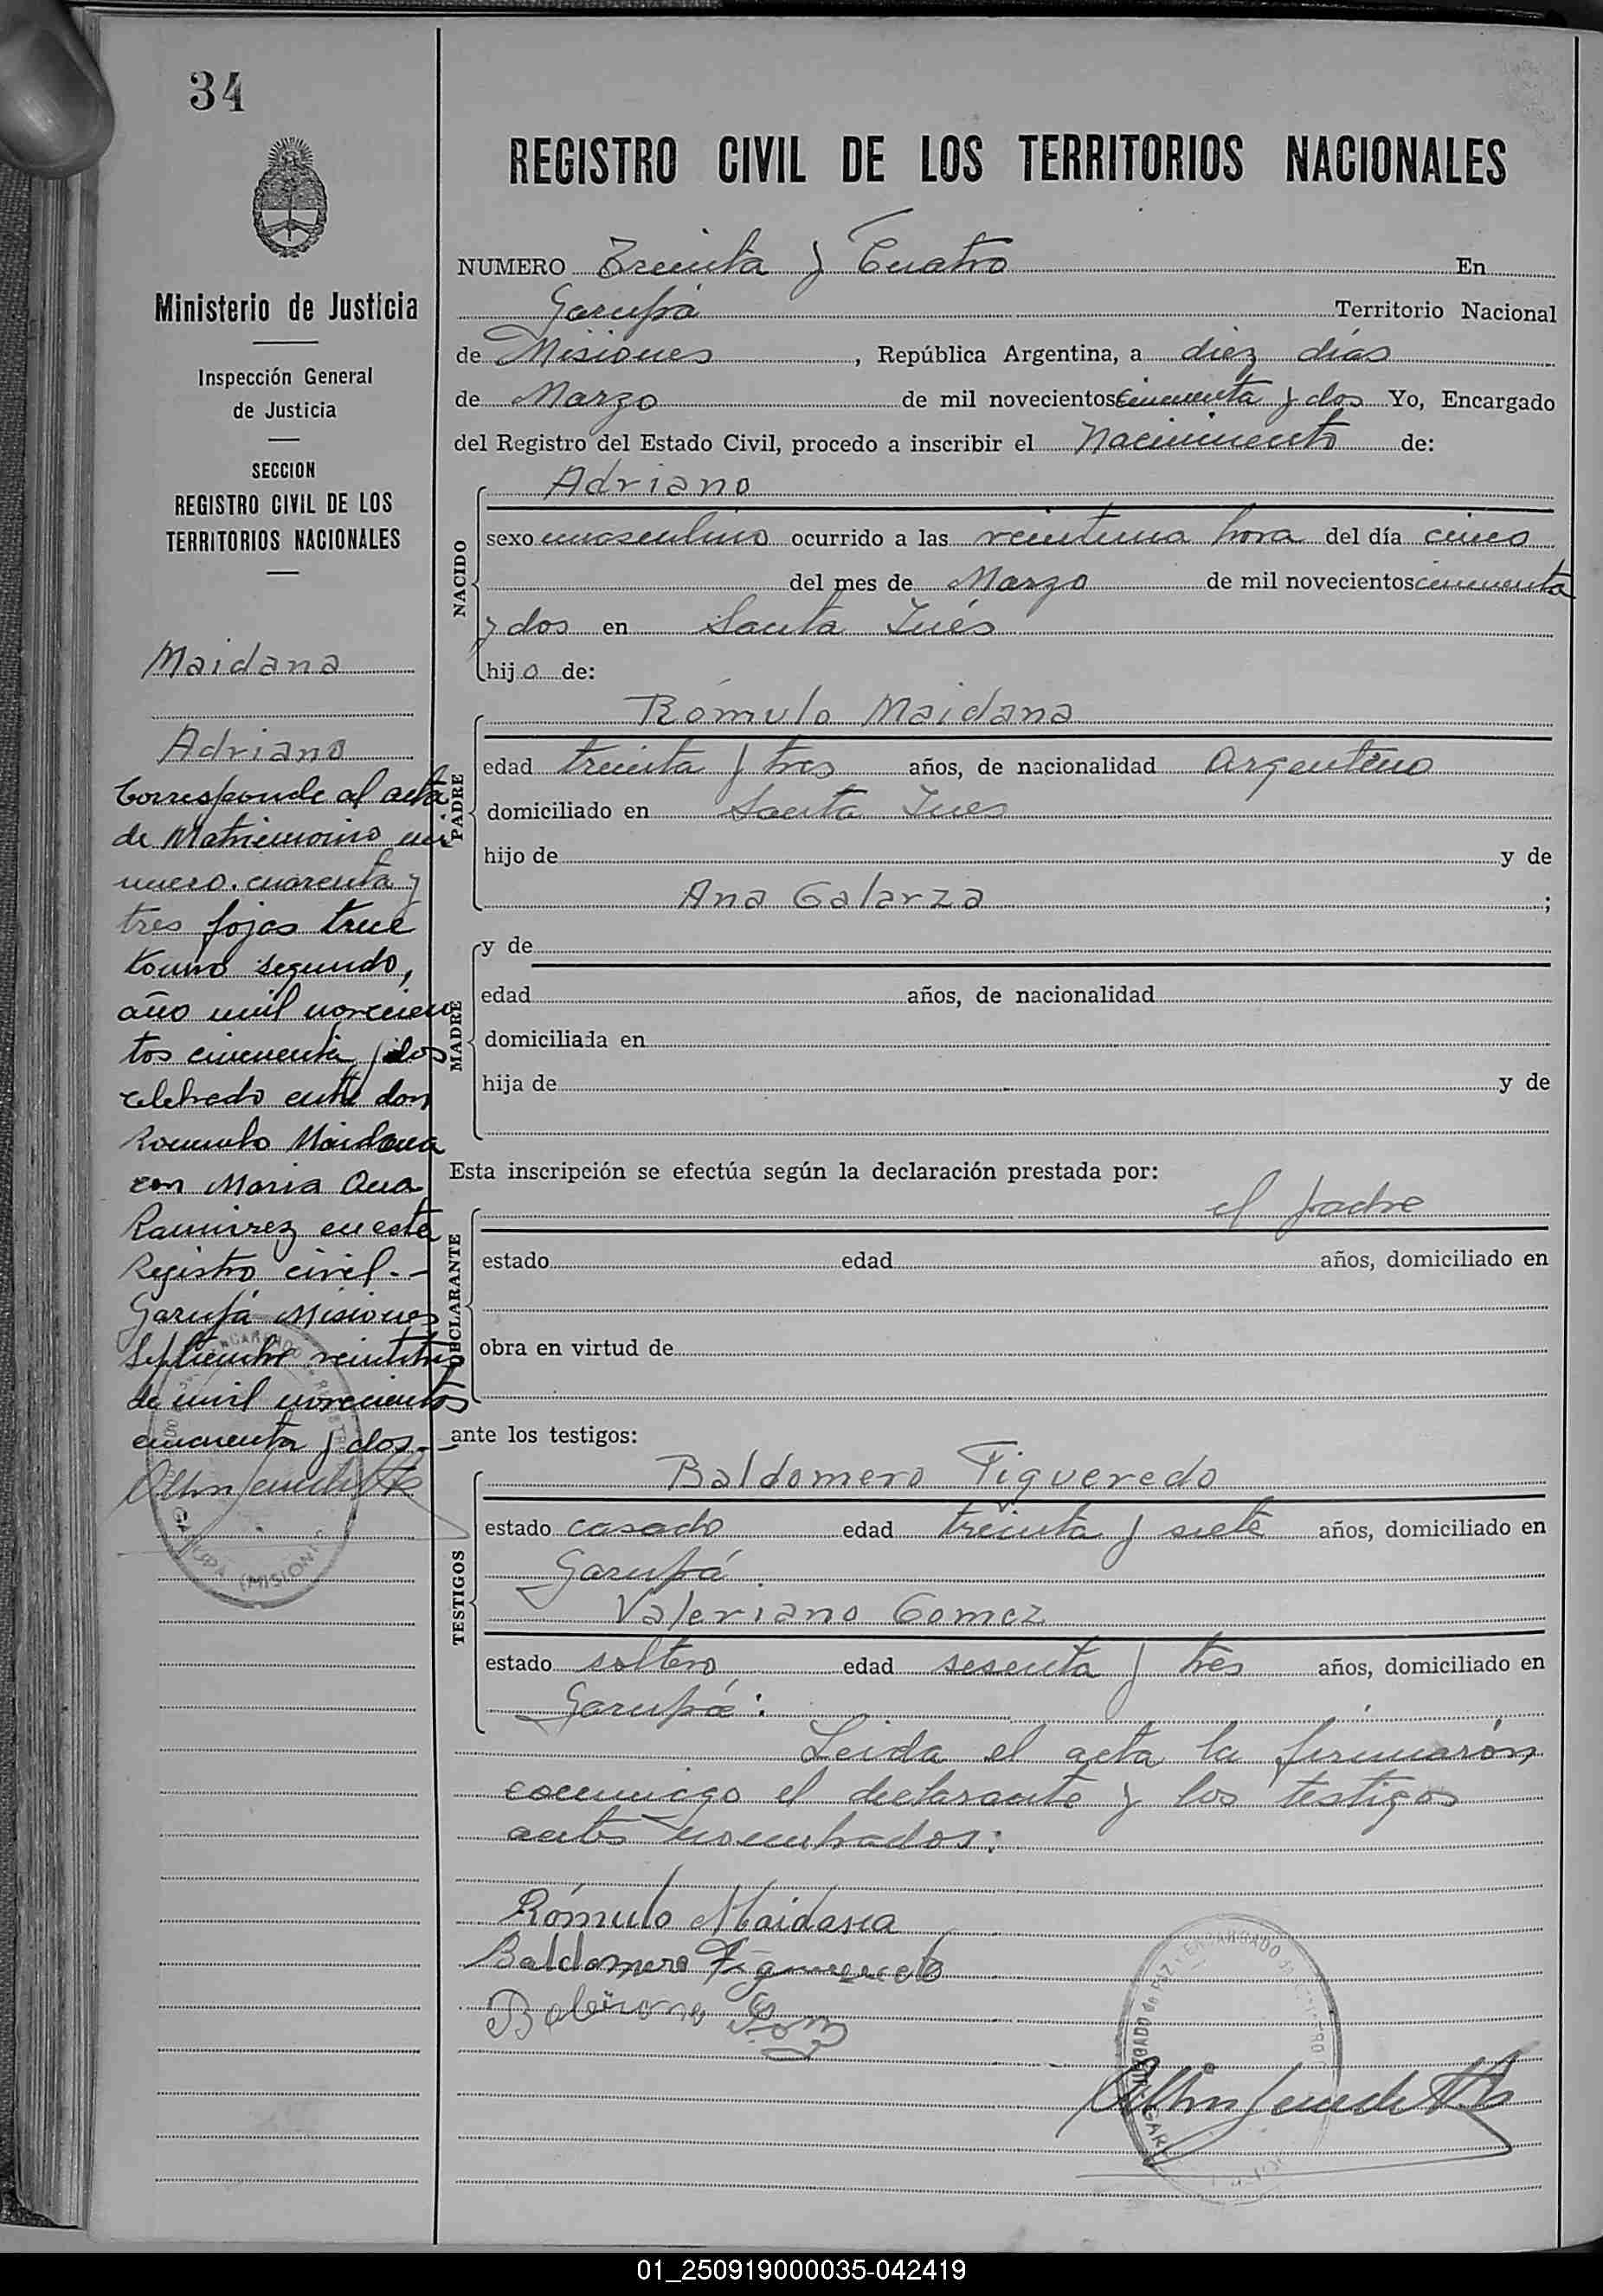 34
Ministerio de Justicia
Inspección General
de Justicia
SECCION
REGISTRO CIVIL DE LOS
TERRITORIOS NACIONALES
Maidana
Adriano
Corresponde al acta
de Matrimonio nú
mero cuarenta y
tres fojas trece
tomo segundo,
año mil novecien
tos cincuenta y dos
celebrado entre don
Romulo Maidana
con Maria Ana
Ramirez en este
Registro civil.-
Garupá Misiones
Septiembre veintitres
de mil novecientos
cincuenta y dos.-
REGISTRO CIVIL DE LOS TERRITORIOS NACIONALES
NUMERO Treinta y Cuatro En
Garupá Territorio Nacional
de Misiones, República Argentina, a diez días
de Marzo de mil novecientos cincuenta y dos Yo, Encargado
del Registro del Estado Civil, procedo a inscribir el Nacimiento de:
NACIDO
Adriano
sexo masculino ocurrido a las veintiuna hora del día cinco
del mes de Marzo de mil novecientos cincuenta
y dos en Santa Inés
hijo de:
PADRE
Rómulo Maidana
edad treinta y tres años, de nacionalidad Argentino
domiciliado en Santa Ines
hijo de y de
Ana Galarza ;
MADRE
y de
edad años, de nacionalidad
domiciliada en
hija de y de
Esta inscripción se efectúa según la declaración prestada por:
DECLARANTE
el padre
estado edad años, domiciliado en
obra en virtud de
ante los testigos:
TESTIGOS
Baldomero Figueredo
estado casado edad treinta y siete años, domiciliado en
Garupá.
Valeriano Gomez
estado soltero edad sesenta y tres años, domiciliado en
Garupá:
Leida el acta la firmarón
conmigo el declarante y los testigos
antes nombrados:
Rómulo Maidana
Baldomero Figueredo
01_250919000035-042419